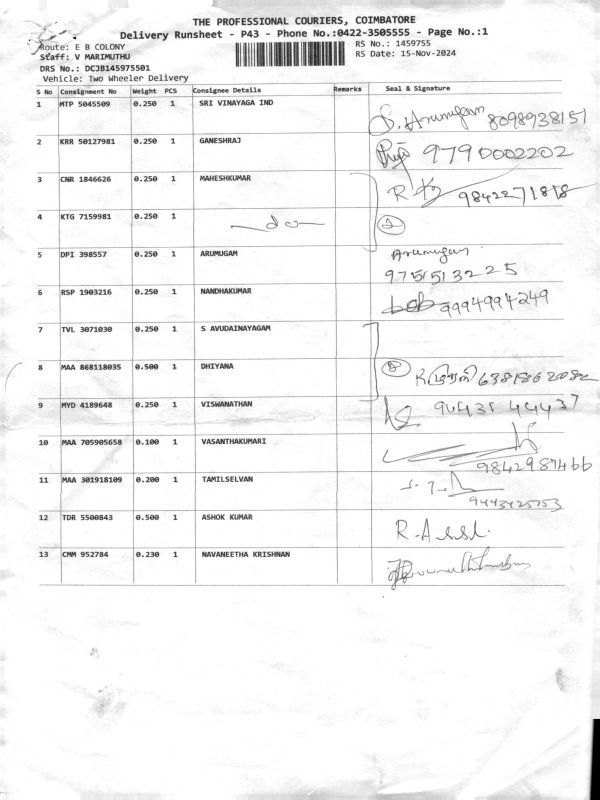 THE PROFESSIONAL COURIERS, COIMBATORE
Delivery Runsheet - P43 - Phone No.:0422-3505555 - Page No.:1
Route: E B COLONY
RS No.: 1459755
Staff: V MARIMUTHU
RS Date: 15-Nov-2024
DRS No.: DCJB145975501
Vehicle: Two Wheeler Delivery
S No Consignment No Weight PCS Consignee Details Remarks Seal & Signature
1 MTP 5045509 0.250 1 SRI VINAYAGA IND S. Arumugam 8098938151
2 KRR 50127981 0.250 1 GANESHRAJ 9790002202
3 CNR 1846626 0.250 1 MAHESHKUMAR 9842271818
4 KTG 7159981 0.250 1 do 2
5 DPI 398557 0.250 1 ARUMUGAM Arumugam
9751513225
6 RSP 1903216 0.250 1 NANDHAKUMAR 9994994249
7 TVL 3071030 0.250 1 S AVUDAINAYAGAM
8 MAA 868118035 0.500 1 DHIYANA
9 MYD 4189648 0.250 1 VISWANATHAN 90431 44437
10 MAA 705905658 0.100 1 VASANTHAKUMARI
9842987466
11 MAA 301918109 0.200 1 TAMILSELVAN
9443425753
12 TDR 5500843 0.500 1 ASHOK KUMAR
13 CMM 952784 0.230 1 NAVANEETHA KRISHNAN